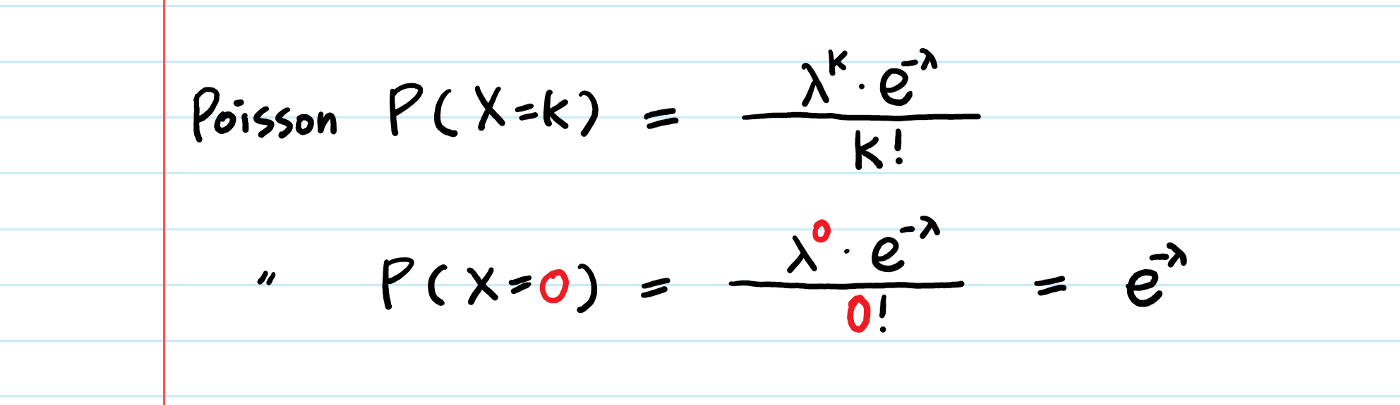 Poisson P(X=k) = λ^k · e^-λ / k!
〃 P(X=0) = λ^0 · e^-λ / 0! = e^-λ